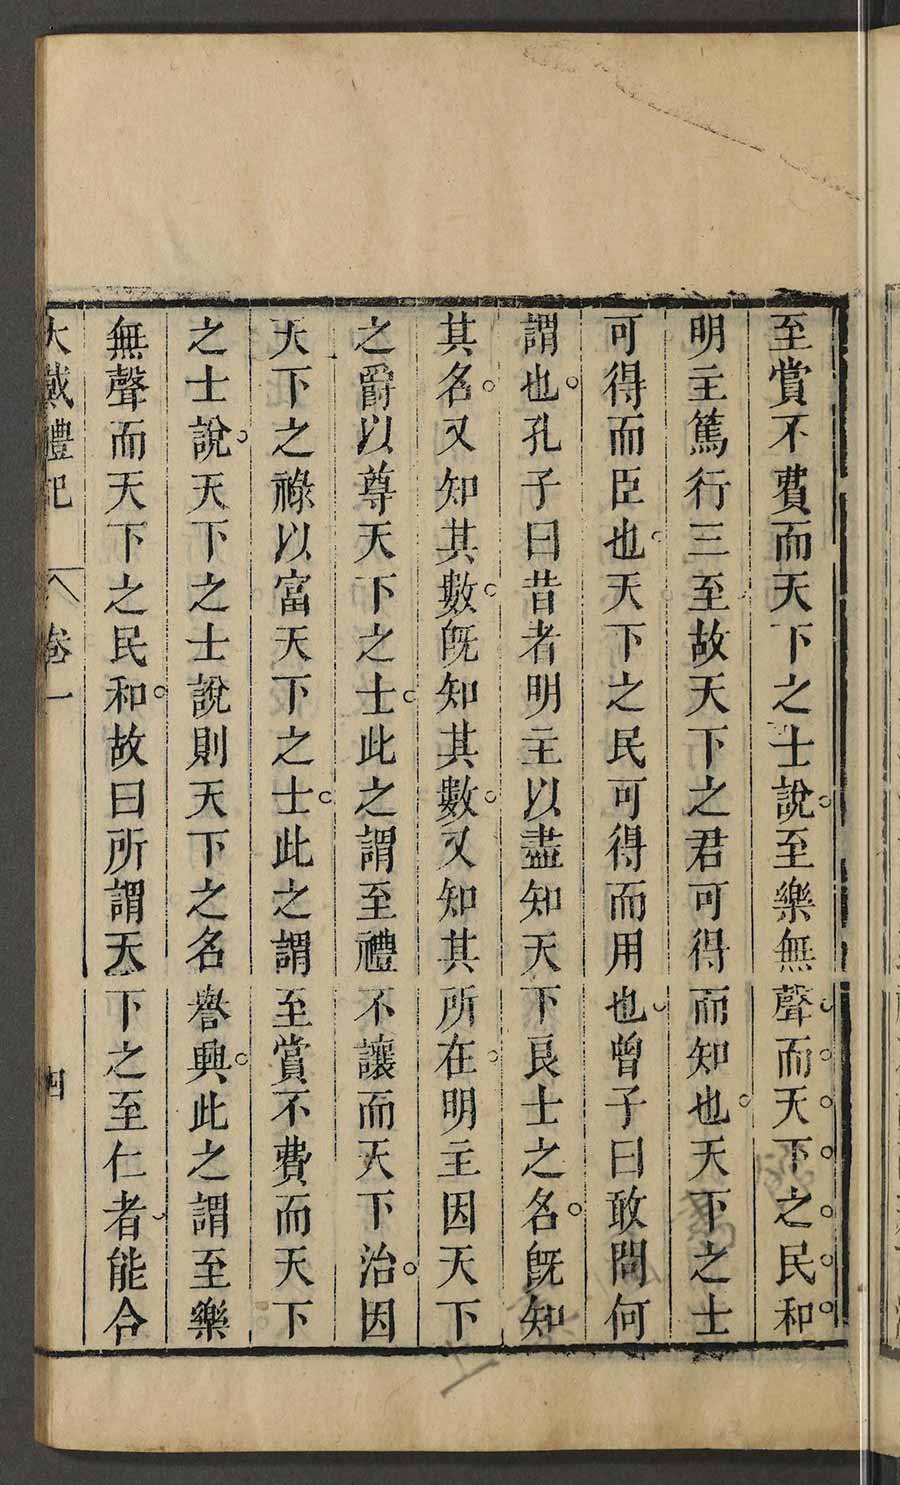 至賞不費而天下之士說至樂無聲而天下之民和
明主篤行三至故天下之君可得而知也天下之士
可得而臣也天下之民可得而用也曾子曰敢問何
謂也孔子曰昔者明主以盡知天下良士之名既知
其名又知其數既知其數又知其所在明主因天下
之爵以尊天下之士此之謂至禮不讓而天下治因
天下之祿以富天下之士此之謂至賞不費而天下
之士說天下之士說則天下之名譽興此之謂至樂
無聲而天下之民和故曰所謂天下之至仁者能合
大戴禮記 卷一 四